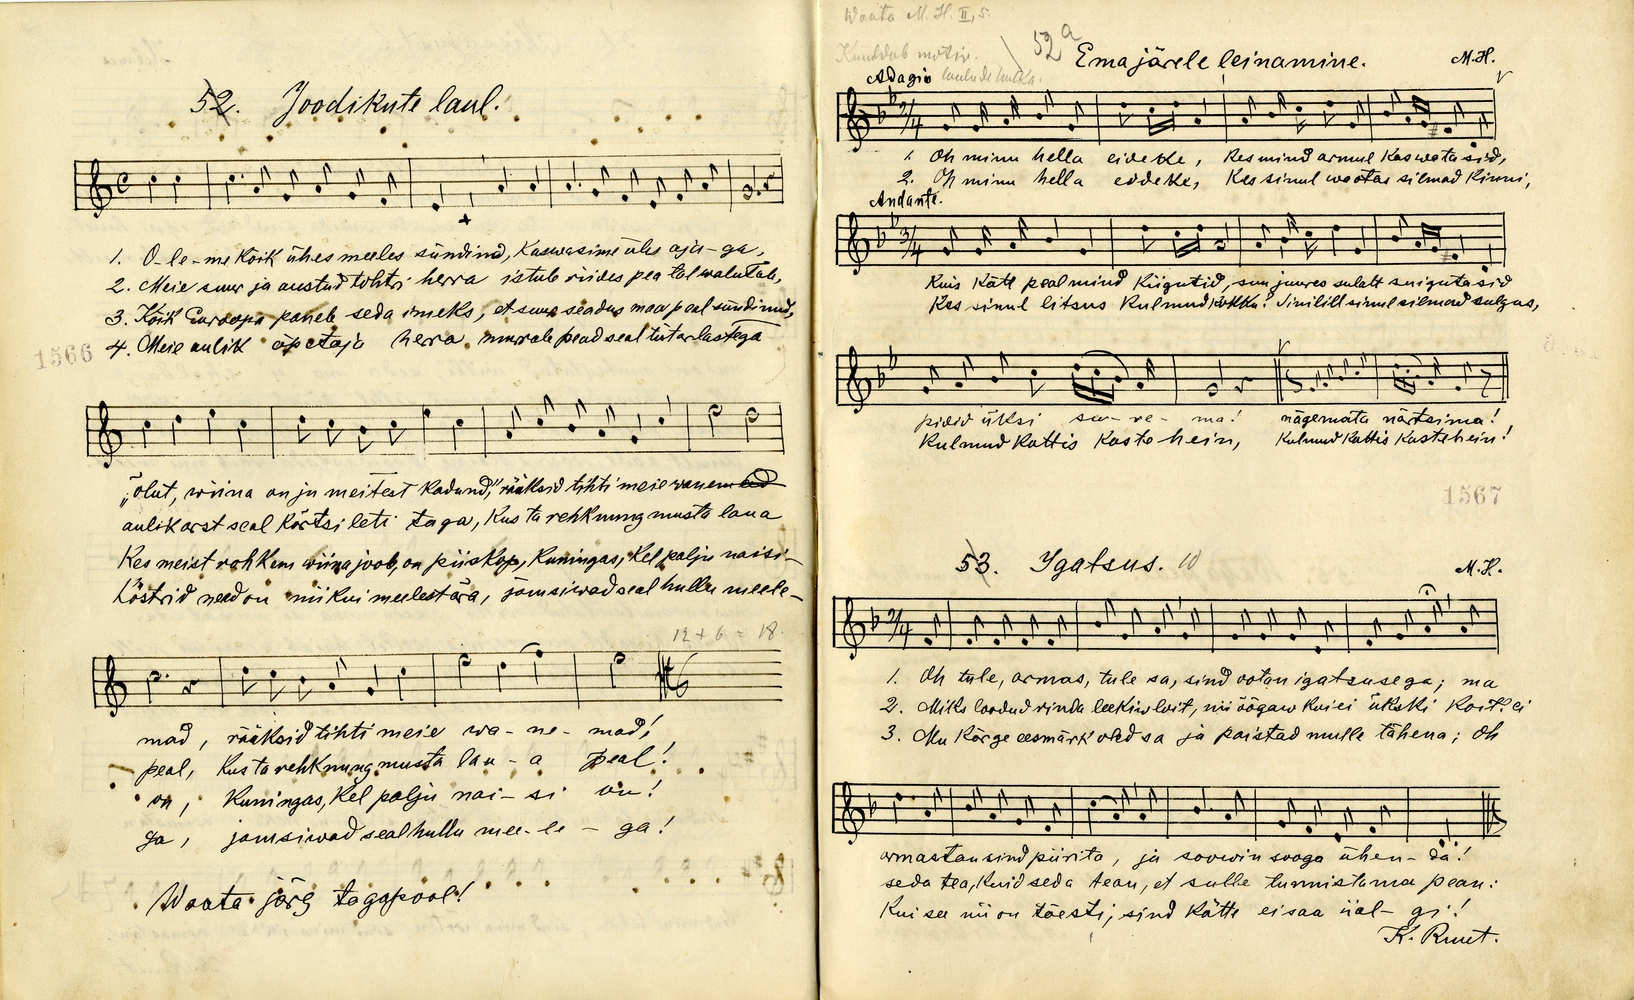 52. Joodikute laul.
1. O-le-me kõik ühes meeles sündind, kaswasime üles aja-ga,
2. Meie suur ja austud tohtri herra istub riides pea tal walutab,
3. Kõik Euroopa paneb seda imeks, et suur seadus maa peal sündinud,
1566
4. Meie aulik õpetaja herra nurrab pead seal tütarlastega
„õlut, wiina on ju meitest kadund," rääksid tihti meie wanemad
aulik arst seal kõrtsi leti taga, kus ta rehknung musta laua
kes meist rohkem wiina joob, on piiskop, kuningas, kel palju naisi-
köstrid need on nii kui meelest ära, jamsiwad seal hullu meele-
12 + 6 = 18.
mad, rääksid tihti meie wa-ne-mad!
peal, kus ta rehknung musta lau-a peal!
on, kuningas, kel palju nai-si on!
ga, jamsiwad seal hullu mee-le-ga!
Waata järg tagapool!
Waata M. H. II, 5.
Kuuldub motiv.
laulude hulka.
52a Ema järele leinamine. M.H.
Adagio
1. Oh minu hella eideke, kes mind armul kaswatasid,
2. Oh minu hella eideke, kes sinul waotas silmad kinni,
Andante.
Kuis kätt peal mind kiigutid, suu juures sulatt suigutasid
Kes sinul litsus kulmud kokku? Sinilill sinul silmad sulgus,
pidid üksi su-re-ma! nägemata närtsima!
Kulmud kattis kaste hein, kulmud kattis kastehein!
1567
53. Igatsus. 10
M.H.
1. Oh tule, armas, tule sa, sind ootan igatsusega; ma
2. Miks loodud rinda leekiw loit, nii õõgaw kui ei ükski koit? ei
3. Mu kõrge eesmärk oled sa ja paistad mulle tähena; oh
armastan sind piirita, ju soowin sooga ühen-da!
seda tea, kuid seda tean, et sulle tunnistama pean:
Kui see nii on tõesti, sind kätte ei saa iial-gi!
K. Ruut.